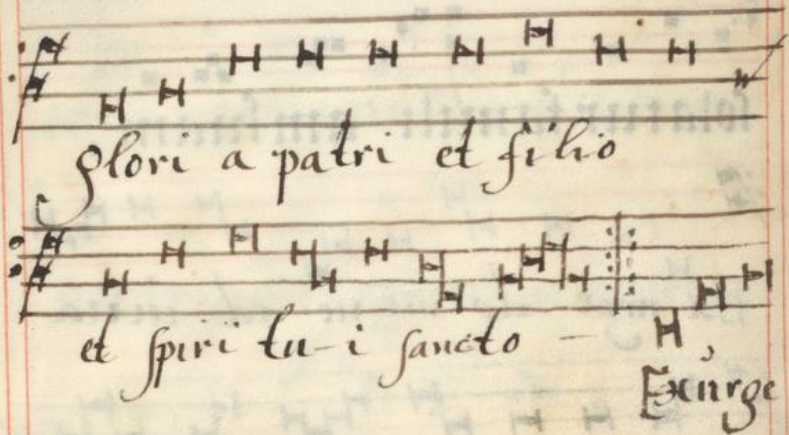 glori a patri et filio
et spiri tu-i sancto -
Exurge